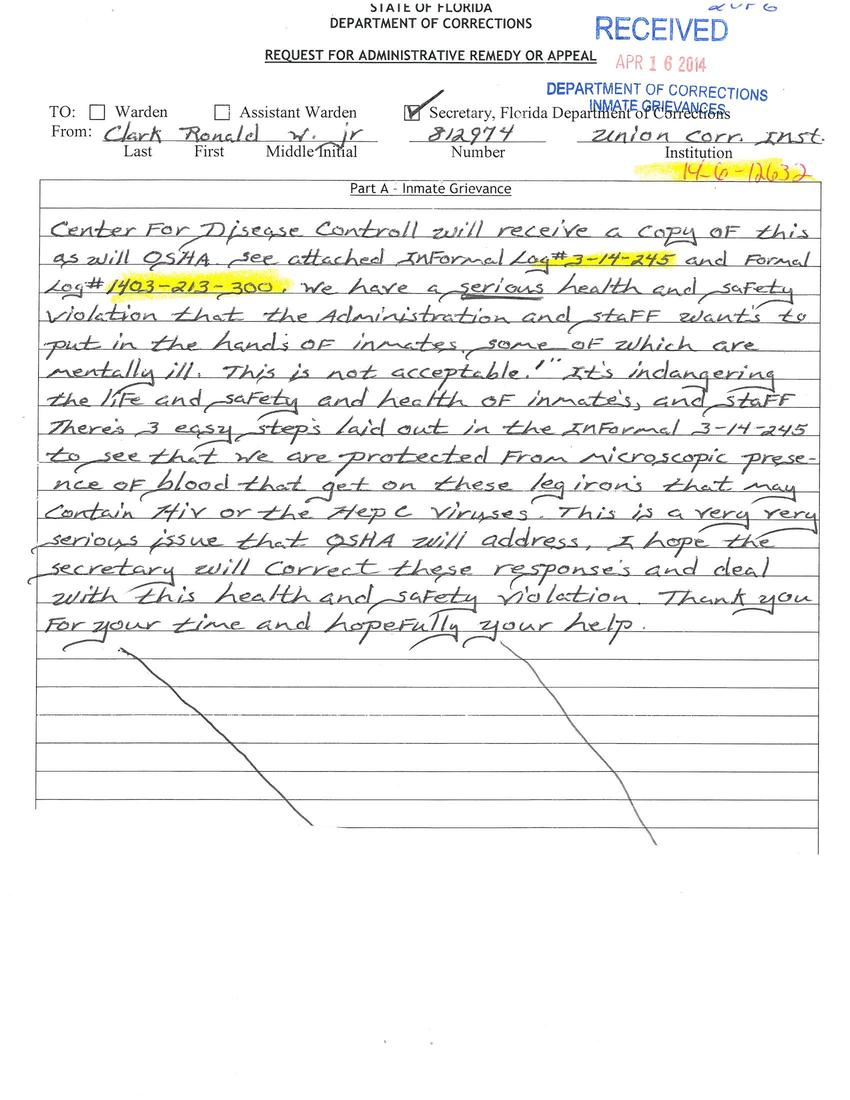 STATE OF FLORIDA
DEPARTMENT OF CORRECTIONS
2 of 6
RECEIVED
REQUEST FOR ADMINISTRATIVE REMEDY OR APPEAL
APR 16 2014
DEPARTMENT OF CORRECTIONS
INMATE GRIEVANCES
TO: Warden Assistant Warden Secretary, Florida Department of Corrections
From: Clark Ronald W. jr 812974 Union Corr. Inst.
Last First Middle Initial Number Institution
14-6-12632
Part A - Inmate Grievance
Center For Disease Controll will receive a copy OF this
as will OSHA. see attached INFormal Log# 3-14-245 and Formal
Log# 1403-213-300. We have a serious health and saFety
violation that the Administration and staFF want's to
put in the hands OF inmates, some OF which are
mentally ill. This is not acceptable!" It's indangering
the liFe and saFety and health OF inmate's, and staFF
There's 3 easy step's laid out in the INFormal 3-14-245
to see that we are protected From microscopic prese-
nce OF blood that get on these leg iron's that may
contain Hiv or the Hep C viruses. This is a very very
serious issue that OSHA will address, I hope the
secretary will correct these response's and deal
with this health and saFety violation. Thank you
For your time and hopeFully your help.